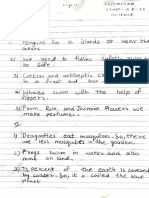 CLASS
SCIENCE
Penguins live in islands or near the
ocean.
2) We need to follow safety rules to
be safe.
3) Cotton and antiseptic
in a first aid box
4) Whales swim with the help of
flippers.
5) From Rose and Jasmine flowers we
make perfumes.
II.
1) Dragonflies eat mosquitoes. So, there
are less mosquitoes in the garden.
2) Frogs swim in water and also
move on land.
3) 75 percent of the earth is covered
by water. So, it is called the blue
planet.